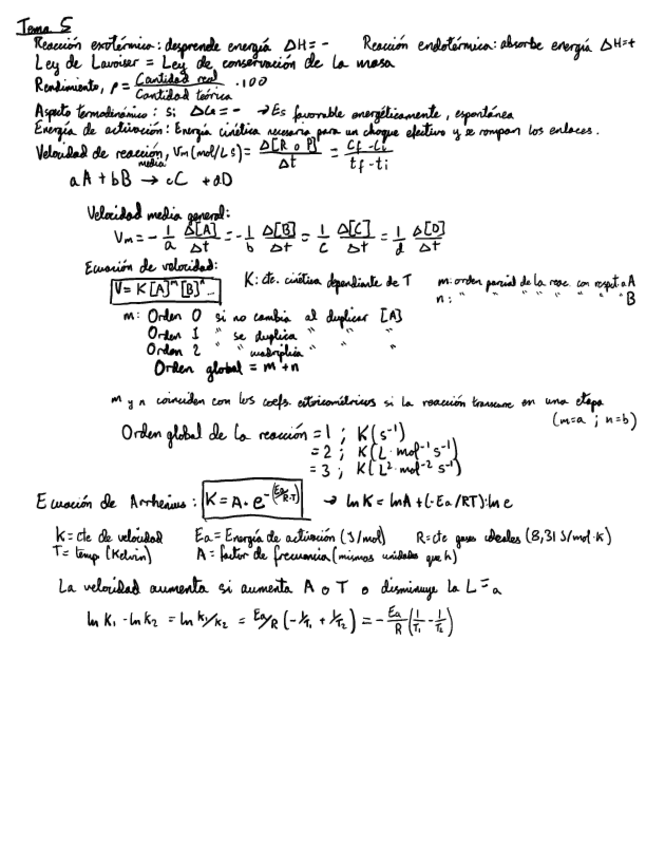 Tema 5
Reacción exotérmica: desprende energía ΔH = - Reacción endotérmica: absorbe energía ΔH = +
Ley de Lavoiser = Ley de conservación de la masa
Rendimiento, ρ = Cantidad real / Cantidad teórica · 100
Aspecto termodinámico: si ΔG = - → Es favorable energéticamente, espontánea
Energía de activación: Energía cinética necesaria para un choque efectivo y se rompan los enlaces.
Velocidad de reacción media, Vm (mol/L s) = Δ[R o P] / Δt = Cf - Ci / tf - ti
aA + bB → cC + dD
Velocidad media general:
Vm = - 1/a Δ[A]/Δt = - 1/b Δ[B]/Δt = 1/c Δ[C]/Δt = 1/d Δ[D]/Δt
Ecuación de velocidad:
V = K [A]^m [B]^n ... K: cte. cinética dependiente de T m: orden parcial de la reac. con respt. a A
n: " " " " " " " B
m: Orden 0 si no cambia al duplicar [A]
Orden 1 " se duplica " " "
Orden 2 " " cuadriplica " " "
Orden global = m + n
m y n coinciden con los coefs. estequiométricos si la reacción transcurre en una etapa
(m=a ; n=b)
Orden global de la reacción = 1 ; K (s⁻¹)
= 2 ; K (L · mol⁻¹ s⁻¹)
= 3 ; K (L² mol⁻² s⁻¹)
Ecuación de Arrhenius: K = A · e^-(Ea/R·T) → ln K = ln A + (-Ea/RT) · ln e
K = cte de velocidad Ea = Energía de activación (J/mol) R = cte gases ideales (8,31 J/mol·K)
T = temp (Kelvin) A = factor de frecuencia (mismas unidades que k)
La velocidad aumenta si aumenta A o T o disminuye la Ea
ln K₁ - ln K₂ = ln K₁/K₂ = Ea/R (-1/T₁ + 1/T₂) = - Ea/R (1/T₁ - 1/T₂)